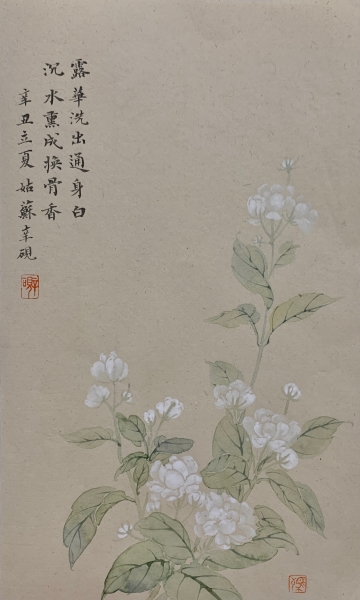 露華洗出通身白
沉水熏成換骨香
辛丑立夏 姑蘇辛硯